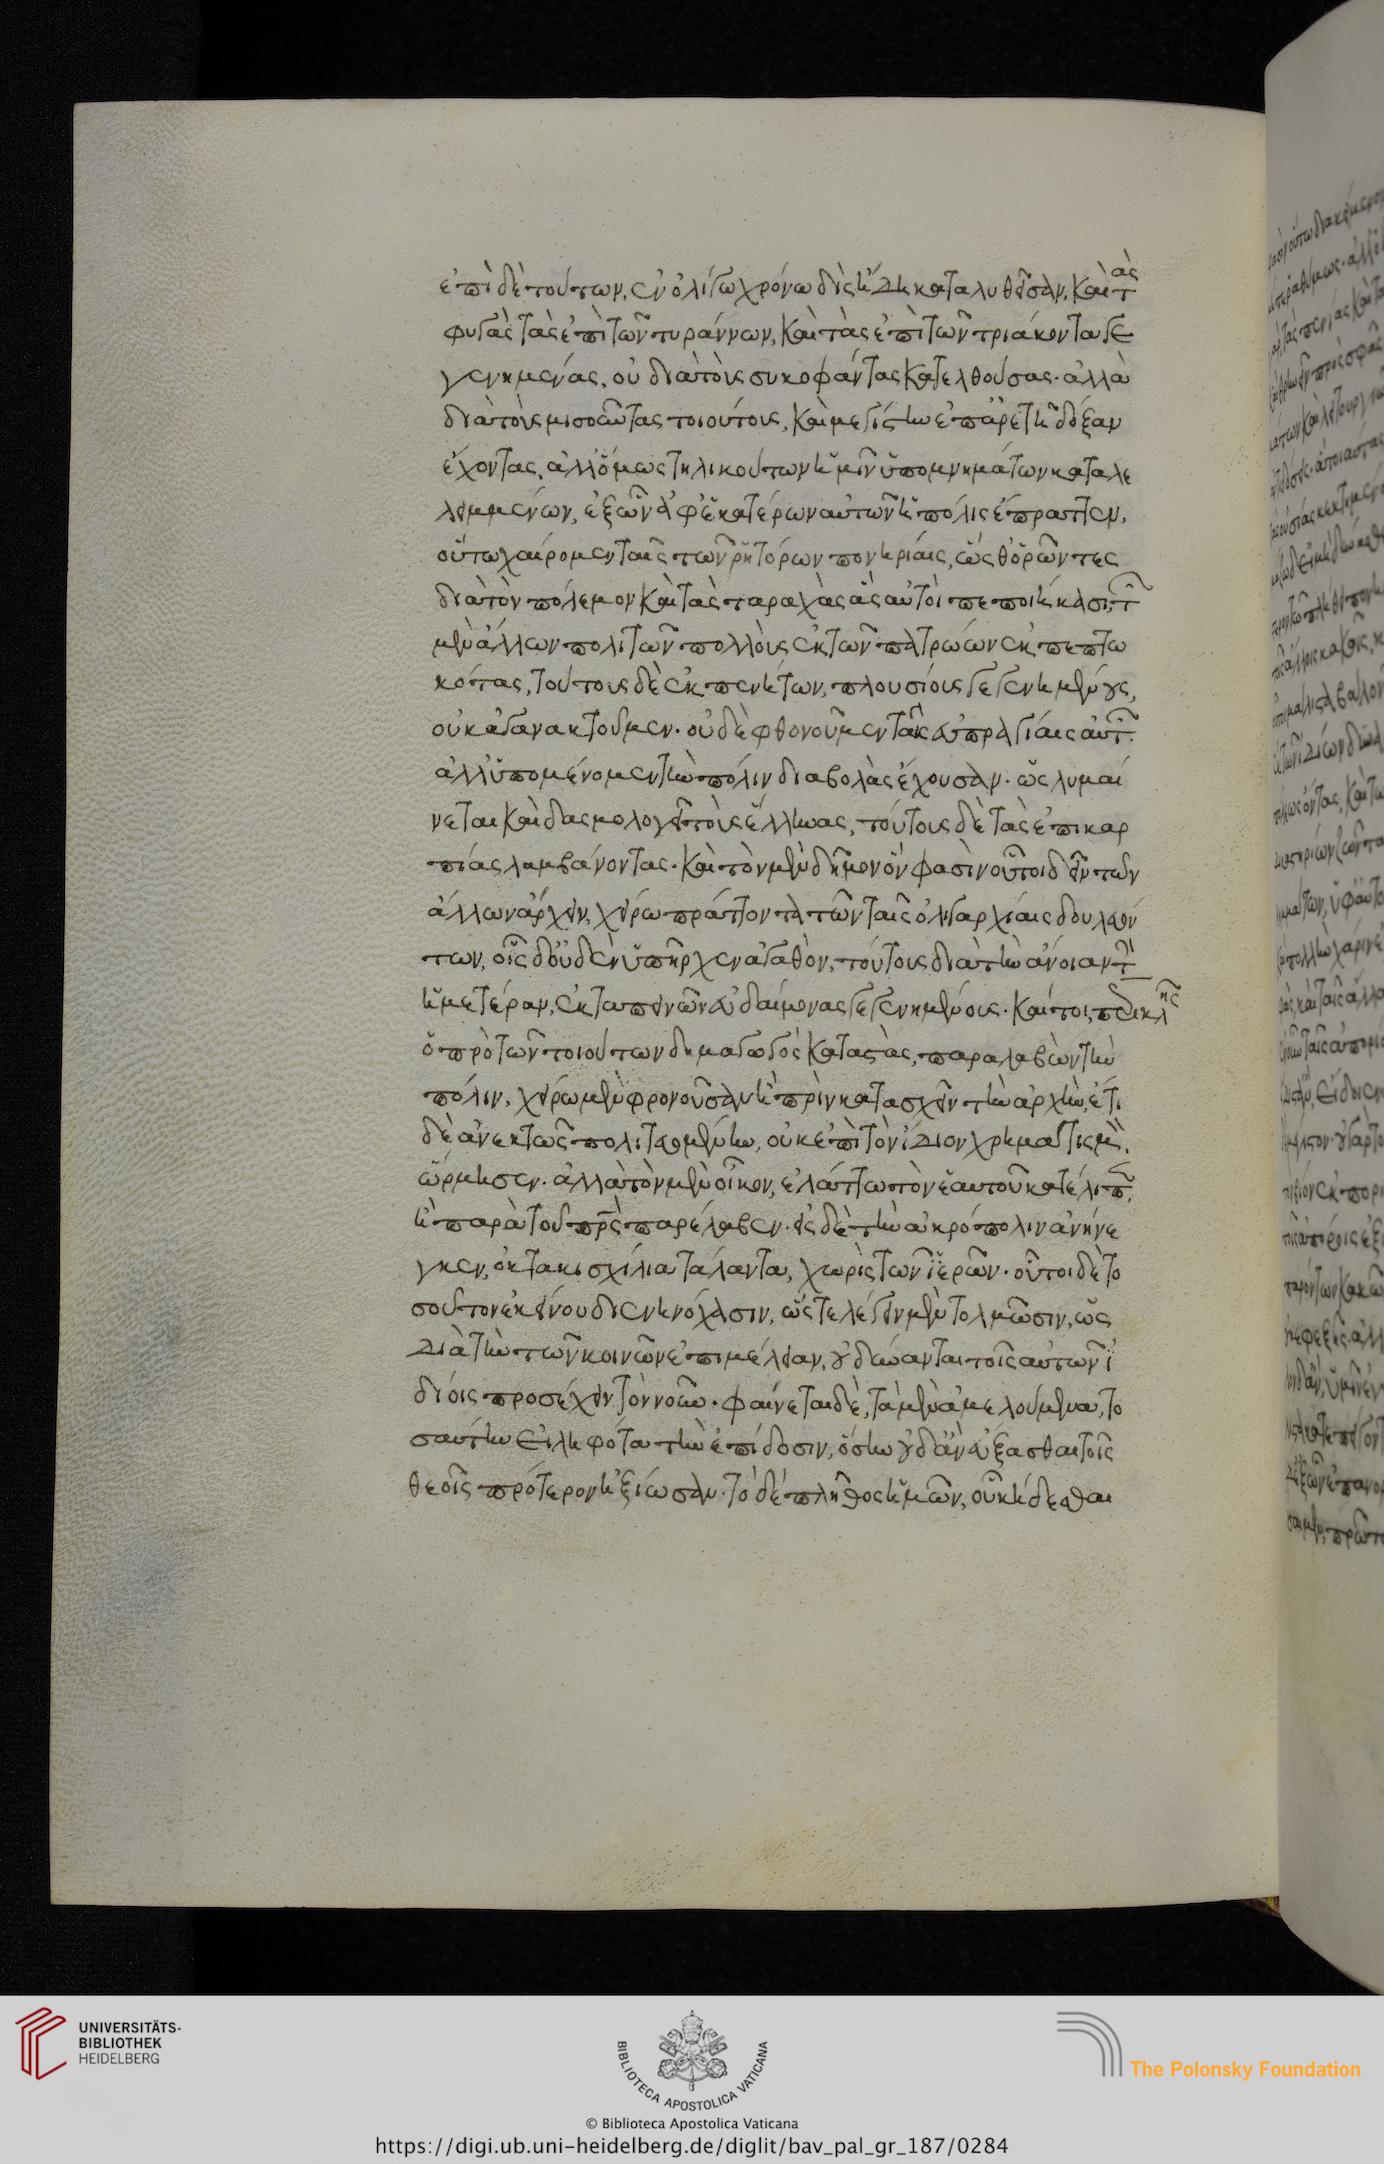 ἐπὶ δὲ τούτων, ἐν ὀλίγω χρόνω δὶς ἤδη καταλυθεῖσαν, καὶ τὰς
φυγὰς τὰς ἐπὶ τῶν τυράννων, καὶ τὰς ἐπὶ τῶν τριάκοντα γε
γενημένας, οὐ διὰ τοὺς συκοφάντας κατελθούσας· ἀλλὰ
διὰ τοὺς μισοῦντας τοιούτους, καὶ μεγίστην ἐπ' ἀρετῆ δόξαν
ἔχοντας, ἀλλ' ὅμως τηλικούτων ἡμῖν ὑπομνημάτων καταλε
λειμμένων, ἐξ ὧν ἀφ' ἑκατέρων αὐτῶν ἡ πόλις ἔπραττεν,
οὕτω χαίρομεν ταῖς τῶν ῥητόρων πονηρίαις, ὥσθ' ὁρῶντες
διὰ τὸν πόλεμον καὶ τὰς ταραχὰς ἃς αὐτοὶ πεποιήκασι, τῶν
μὲν ἄλλων πολιτῶν πολλοὺς ἐκ τῶν πατρώων ἐκπεπτω
κότας, τούτους δὲ ἐκ πενήτων, πλουσίους γεγενημένους,
οὐκ ἀγανακτοῦμεν· οὐδὲ φθονοῦμεν ταῖς εὐπραγίαις αὐτῶν.
ἀλλ' ὑπομένομεν τὴν πόλιν διαβολὰς ἔχουσαν· ὡς λυμαί
νεται καὶ δασμολογεῖ τοὺς ἕλληνας, τούτους δὲ τὰς ἐπικαρ
πίας λαμβάνοντας· καὶ τὸν μὲν δῆμον ὅν φασὶν οὗτοι δεῖν τῶν
ἄλλων ἄρχειν, χείρω πράττοντα τῶν ταῖς ὀλιγαρχίαις δουλευόν
των, οἷς δ' οὐδὲν ὑπῆρχεν ἀγαθὸν, τούτους διὰ τὴν ἄνοιαν τὴν
ἡμετέραν, ἐκ ταπεινῶν εὐδαίμονας γεγενημένους. καίτοι, περικλῆς
ὁ πρὸ τῶν τοιούτων δημαγωγὸς καταστὰς, παραλαβὼν τὴν
πόλιν, χεῖρω μὲν φρονοῦσαν ἢ πρὶν κατασχεῖν τὴν ἀρχὴν, ἔτι
δὲ ἀνεκτῶς πολιτευομένην, οὐκ ἐπὶ τὸν ἴδιον χρηματισμὸν.
ὥρμησεν· ἀλλὰ τὸν μὲν οἶκον, ἐλάττω τὸν ἑαυτοῦ κατέλιπεν,
ἢ παρὰ τοῦ πρς παρέλαβεν· εἰς δὲ τὴν ἀκρόπολιν ἀνήνε
γκεν, ὀκτακισχίλια τάλαντα, χωρὶς τῶν ἱερῶν· οὗτοι δὲ το
σοῦτον ἐκείνου διενηνόχασιν, ὥστε λέγειν μὲν τολμῶσιν, ὡς
διὰ τὴν τῶν κοινῶν ἐπιμέλειαν, οὐ δύνανται τοῖς αὐτῶν ἰ
δίοις προσέχειν τὸν νοῦν. φαίνεται δὲ, τὰ μὲν ἀμελούμενα, το
σαύτην εἰληφότα τὴν ἐπίδοσιν, ὅσην οὐδ' ἂν εὔξασθαι τοῖς
θεοῖς πρότερον ἠξίωσαν. τὸ δὲ πλῆθος ἡμῶν, οὗ κήδεσθαι
UNIVERSITÄTS-
BIBLIOTHEK
HEIDELBERG
BIBLIOTECA APOSTOLICA VATICANA
The Polonsky Foundation
© Biblioteca Apostolica Vaticana
https://digi.ub.uni-heidelberg.de/diglit/bav_pal_gr_187/0284